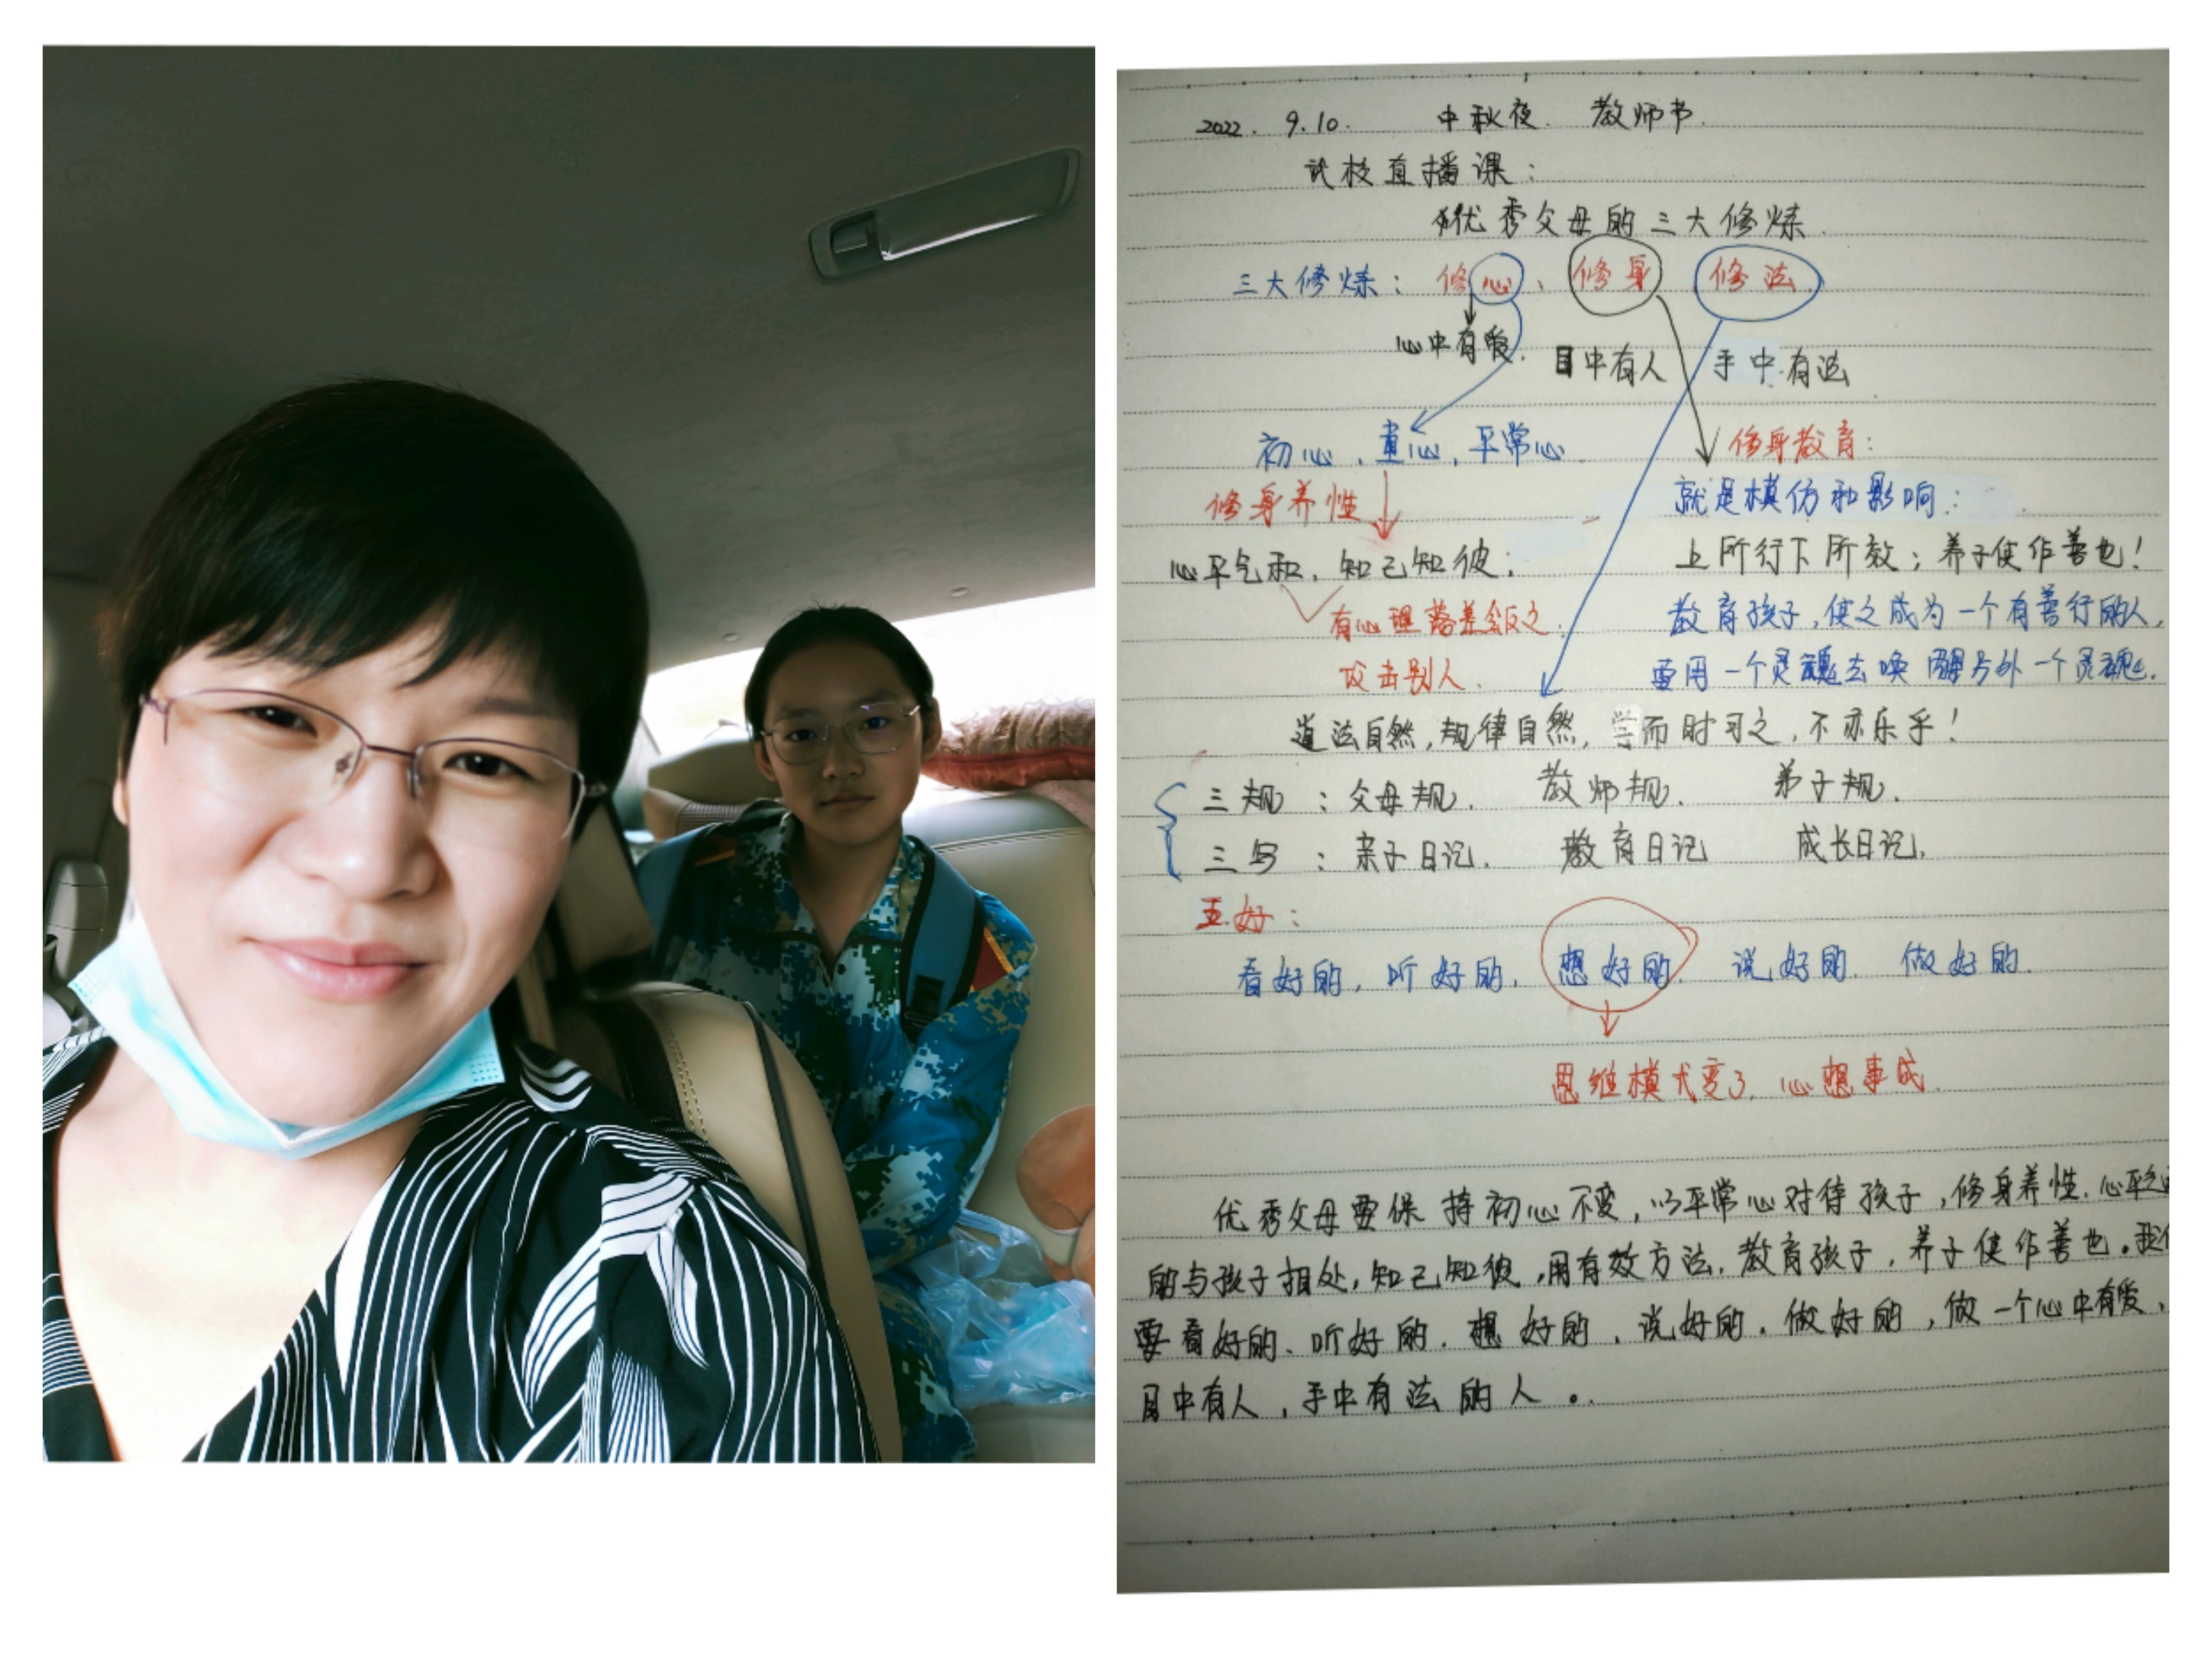 2022. 9.10. 中秋夜. 教师节.
试校直播课:
优秀父母的三大修炼.
三大修炼: 修心、修身 修法.
心中有爱. 目中有人 手中有法
初心, 童心, 平常心. 修身教育:
修身养性 就是模仿和影响:
心平气和, 知己知彼; 上所行下所效; 养子使作善也!
有心理落差会反之. 教育孩子, 使之成为一个有善行的人,
攻击别人. 要用一个灵魂去唤醒另外一个灵魂.
道法自然, 规律自然, 学而时习之, 不亦乐乎!
三规: 父母规. 教师规. 弟子规.
三写: 亲子日记. 教育日记 成长日记.
五好:
看好的, 听好的, 想好的. 说好的. 做好的.
思维模式变了, 心想事成.
优秀父母要保持初心不变, 以平常心对待孩子, 修身养性. 心平气
的与孩子相处, 知己知彼, 用有效方法. 教育孩子, 养子使作善也。我们
要看好的、听好的. 想好的、说好的. 做好的, 做一个心中有爱,
目中有人, 手中有法的人。